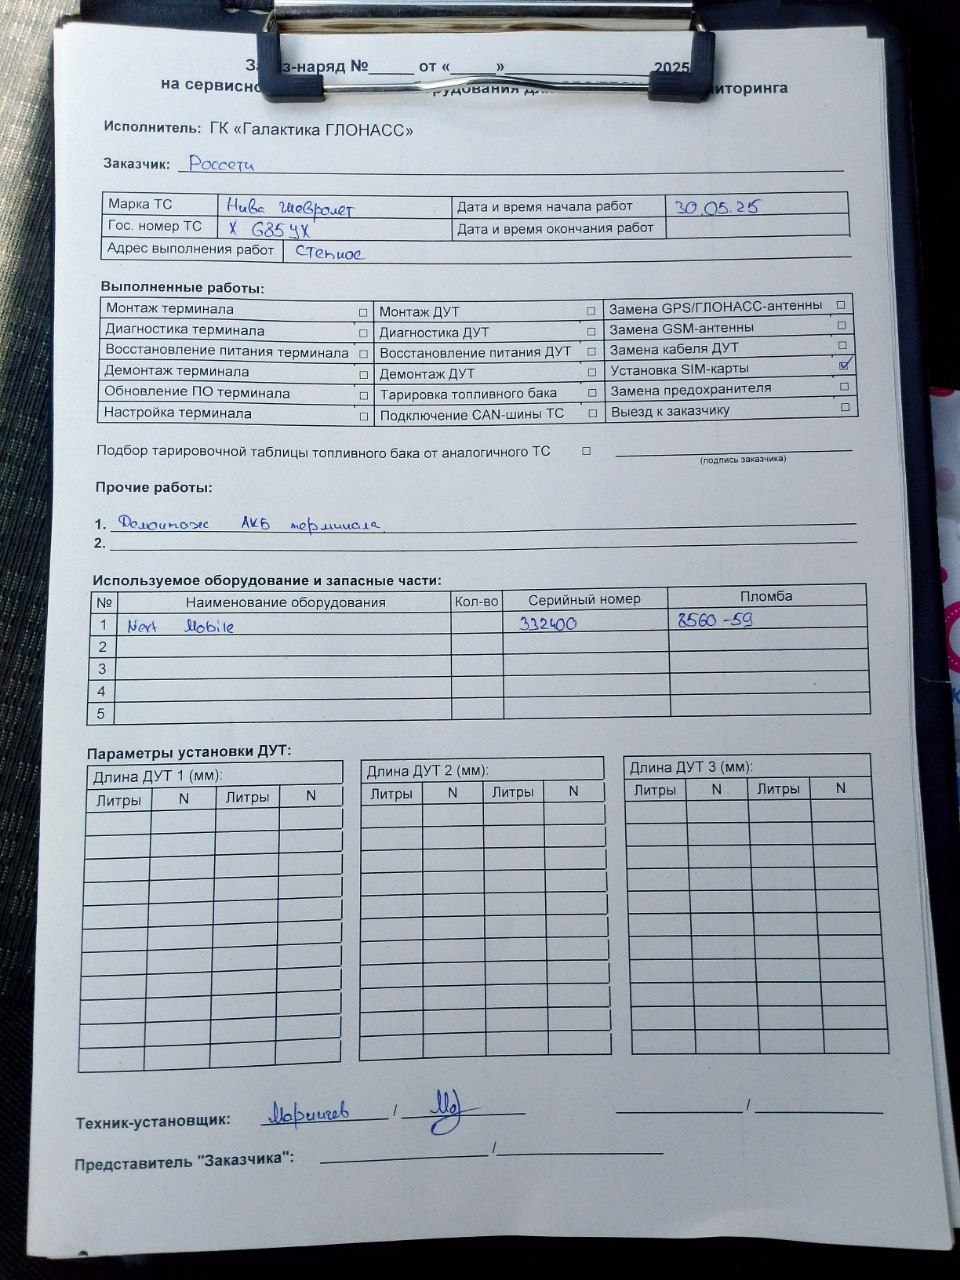 з-наряд №_____ от «_____»________________2025
на сервисно рудования для иторинга
Исполнитель: ГК «Галактика ГЛОНАСС»
Заказчик: Россети
Марка ТС Нива шевролет Дата и время начала работ 30.05.25
Гос. номер ТС Х 685 УХ Дата и время окончания работ
Адрес выполнения работ Степное
Выполненные работы:
Монтаж терминала ☐ Монтаж ДУТ ☐ Замена GPS/ГЛОНАСС-антенны ☐
Диагностика терминала ☐ Диагностика ДУТ ☐ Замена GSM-антенны ☐
Восстановление питания терминала ☐ Восстановление питания ДУТ ☐ Замена кабеля ДУТ ☐
Демонтаж терминала ☐ Демонтаж ДУТ ☐ Установка SIM-карты ☑
Обновление ПО терминала ☐ Тарировка топливного бака ☐ Замена предохранителя ☐
Настройка терминала ☐ Подключение CAN-шины ТС ☐ Выезд к заказчику ☐
Подбор тарировочной таблицы топливного бака от аналогичного ТС ☐
(подпись заказчика)
Прочие работы:
1. Демонтаж АКБ терминала
2.
Используемое оборудование и запасные части:
№ Наименование оборудования Кол-во Серийный номер Пломба
1 Next Mobile 332400 8560-59
2
3
4
5
Параметры установки ДУТ:
Длина ДУТ 1 (мм): Длина ДУТ 2 (мм): Длина ДУТ 3 (мм):
Литры N Литры N Литры N Литры N Литры N Литры N
Техник-установщик: / /
Представитель "Заказчика": /